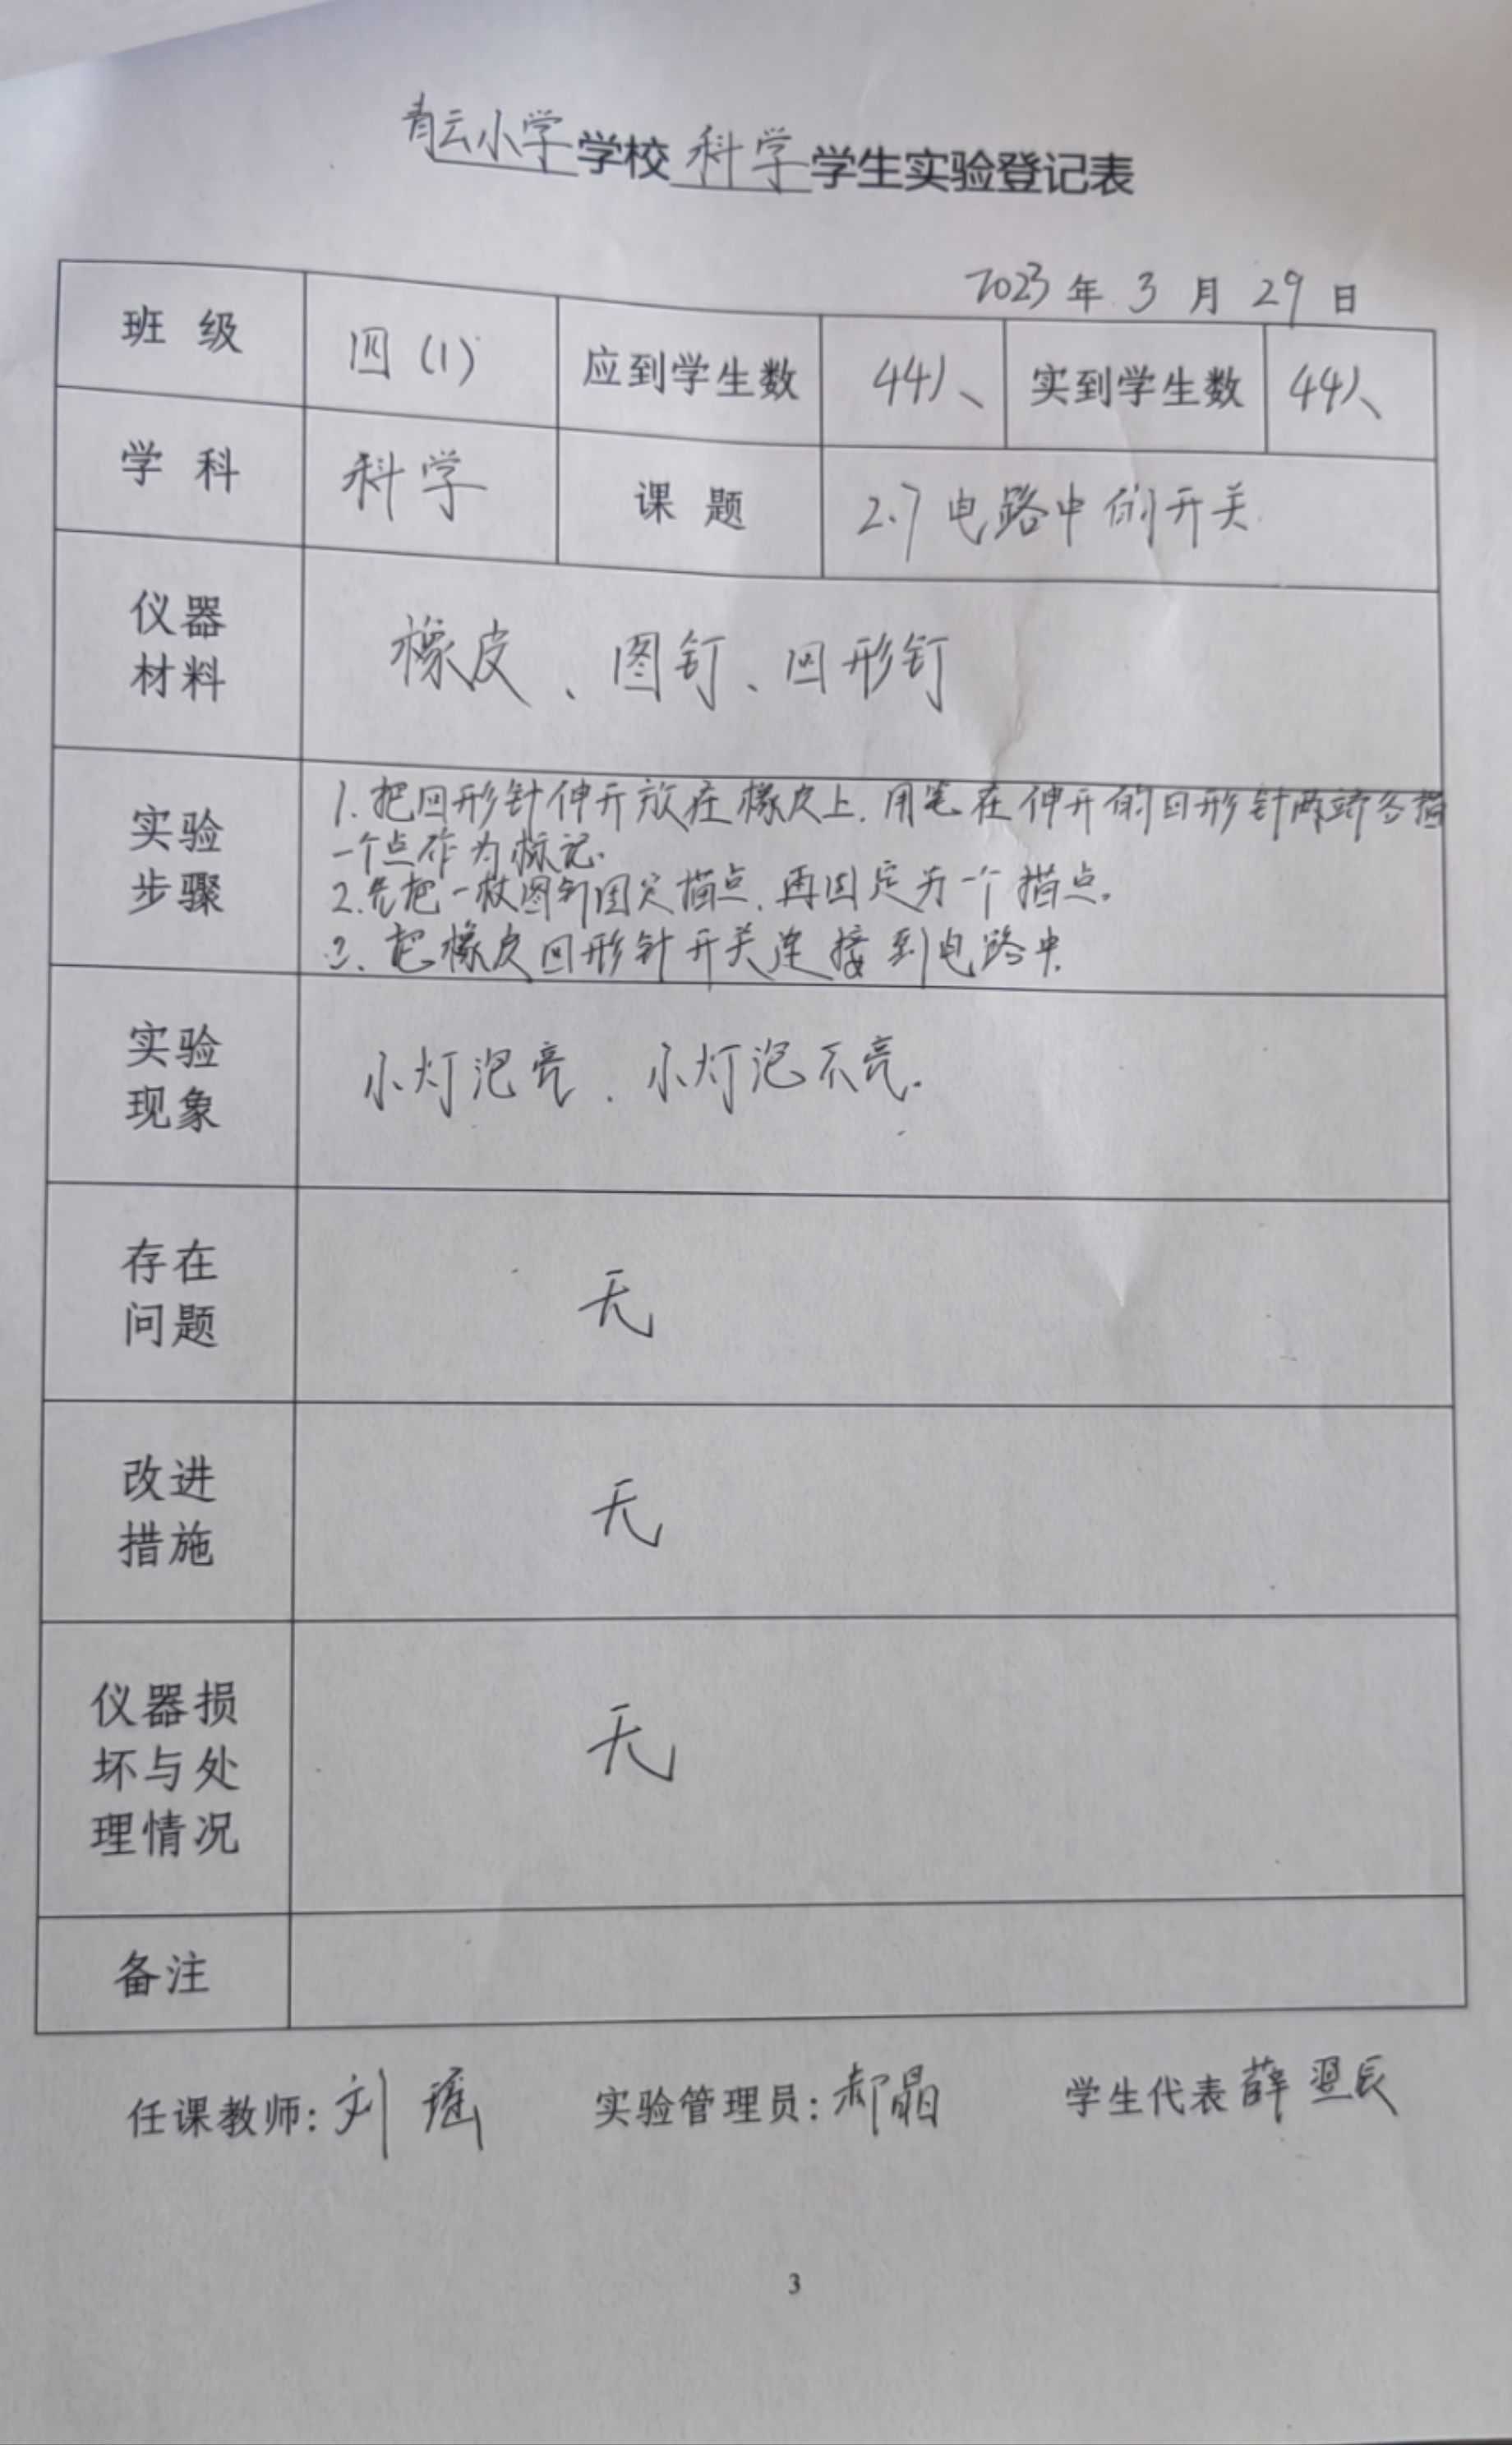 青云小学学校科学学生实验登记表
2023年3月29日
班级 四(1) 应到学生数 44人 实到学生数 44人
学科 科学 课题 2.7电路中的开关
仪器
材料
橡皮、图钉、回形钉
实验
步骤
1.把回形针伸开放在橡皮上.用笔在伸开的回形针两端各描
一个点作为标记.
2.先把一枚图钉固定描点.再固定另一个描点.
3.把橡皮回形针开关连接到电路中
实验
现象
小灯泡亮.小灯泡不亮.
存在
问题
无
改进
措施
无
仪器损
坏与处
理情况
无
备注
任课教师:刘瑶 实验管理员:郝晶 学生代表薛翌辰
3